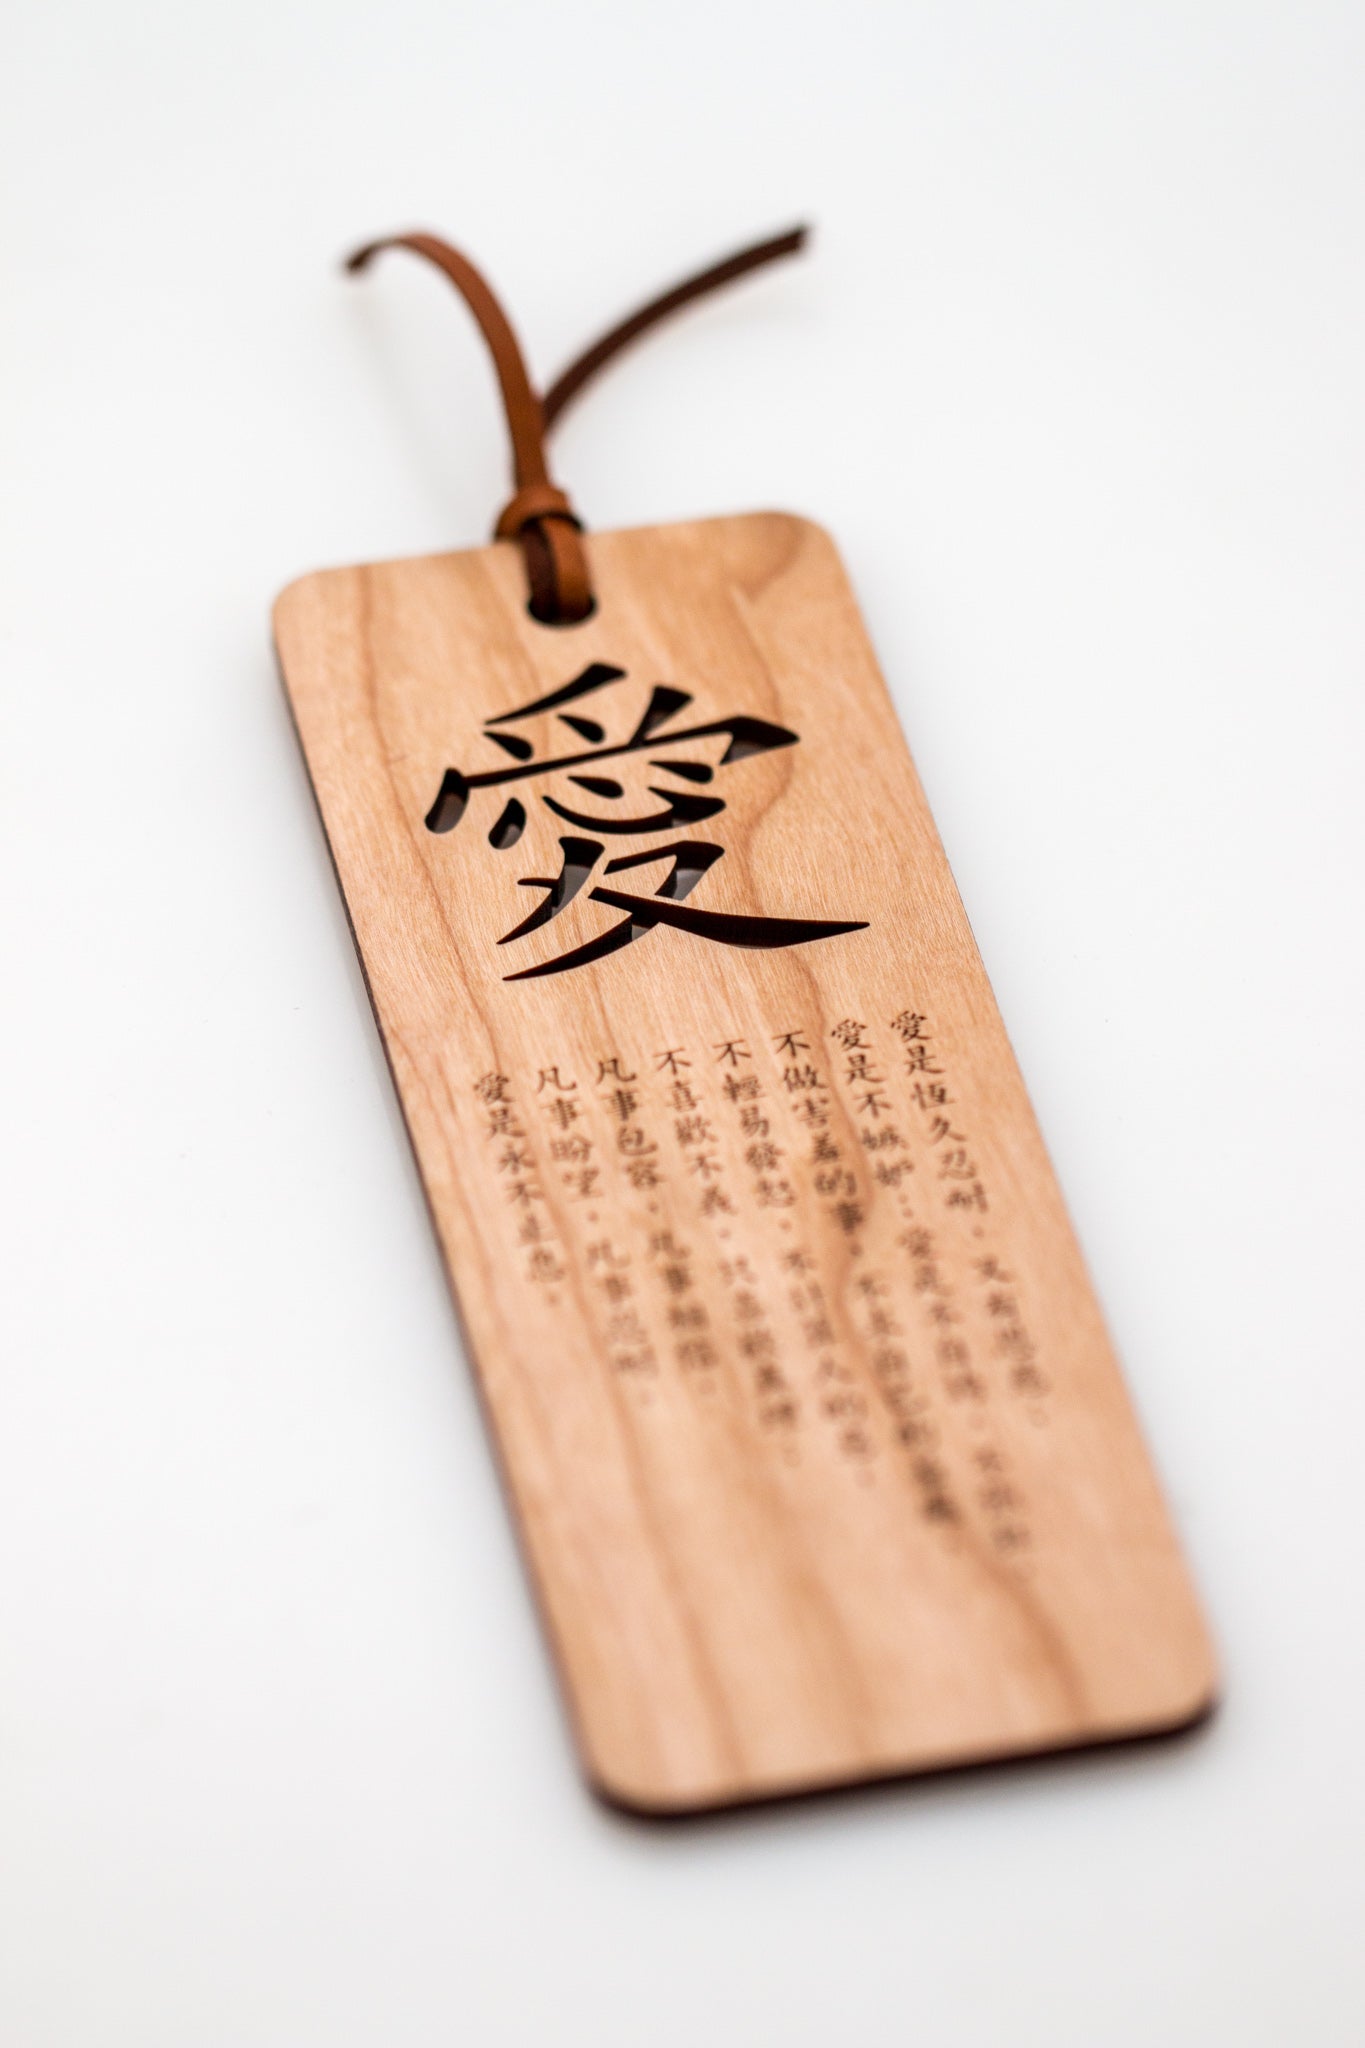 愛
愛是恆久忍耐，又有恩慈。
愛是不嫉妒；愛是不自誇，不張狂，
不做害羞的事，不求自己的益處，
不輕易發怒，不計算人的惡，
不喜歡不義，只喜歡真理。
凡事包容，凡事相信，
凡事盼望，凡事忍耐。
愛是永不止息。